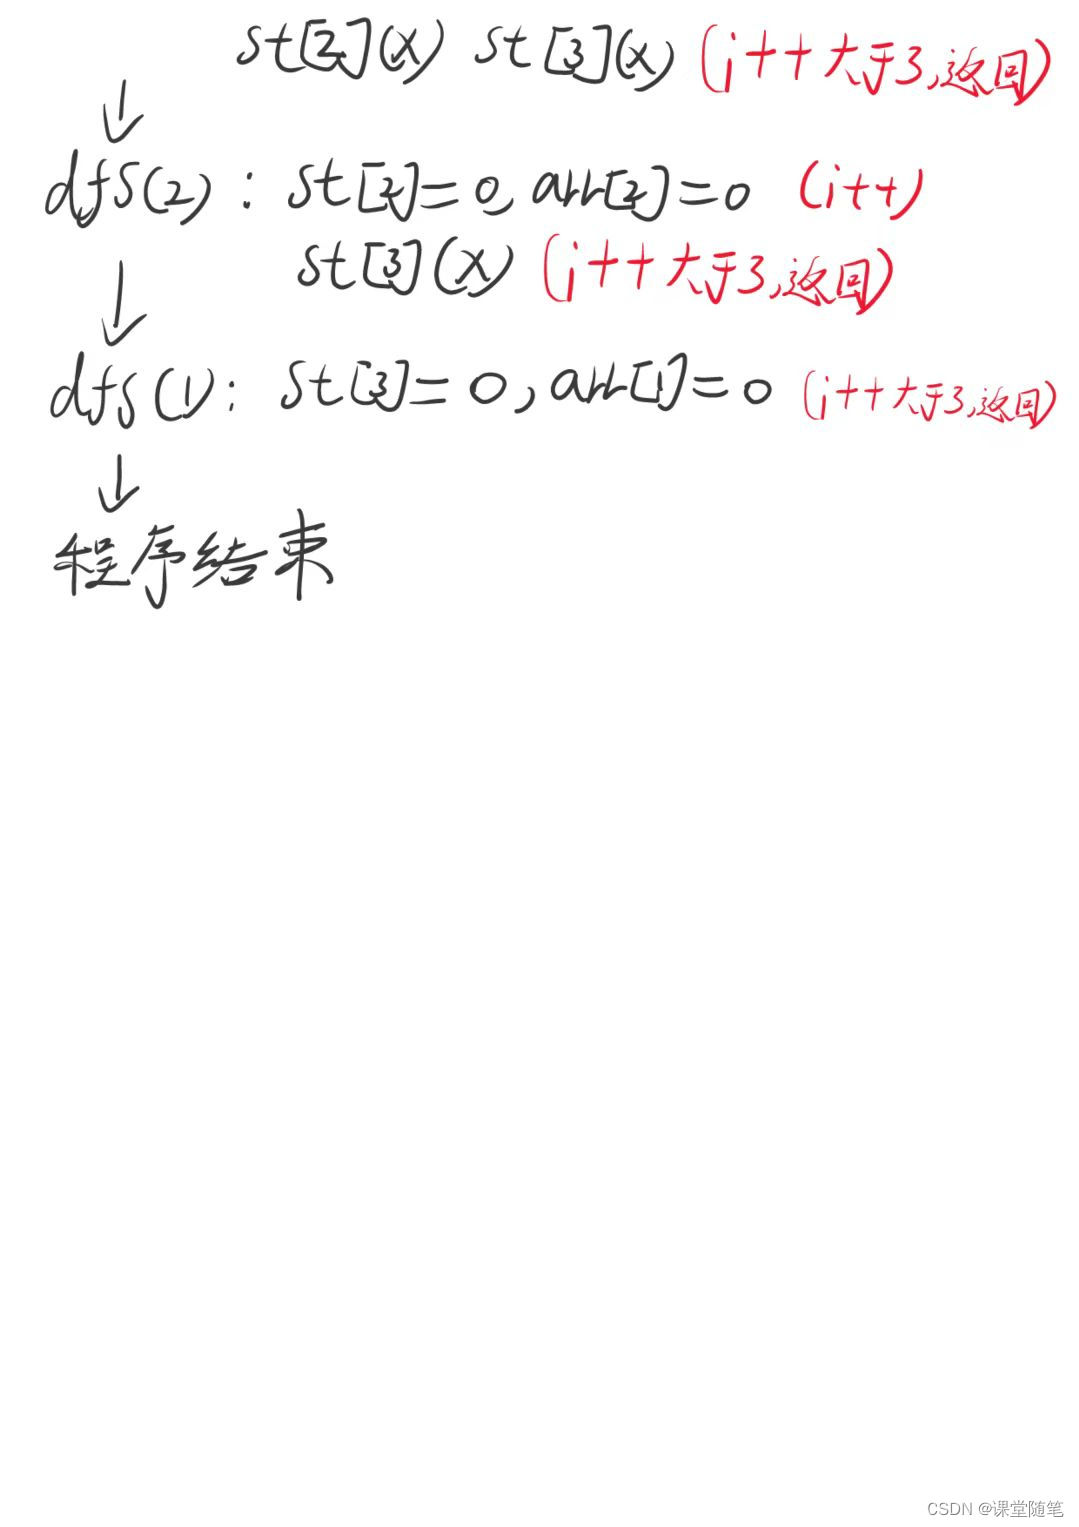 st[2](x) st[3](x) (i++大于3,返回)
↓
dfs(2): st[2]=0, arr[2]=0 (i++)
st[3](x) (i++大于3,返回)
↓
dfs(1): st[3]=0, arr[1]=0 (i++大于3,返回)
↓
程序结束
CSDN @课堂随笔